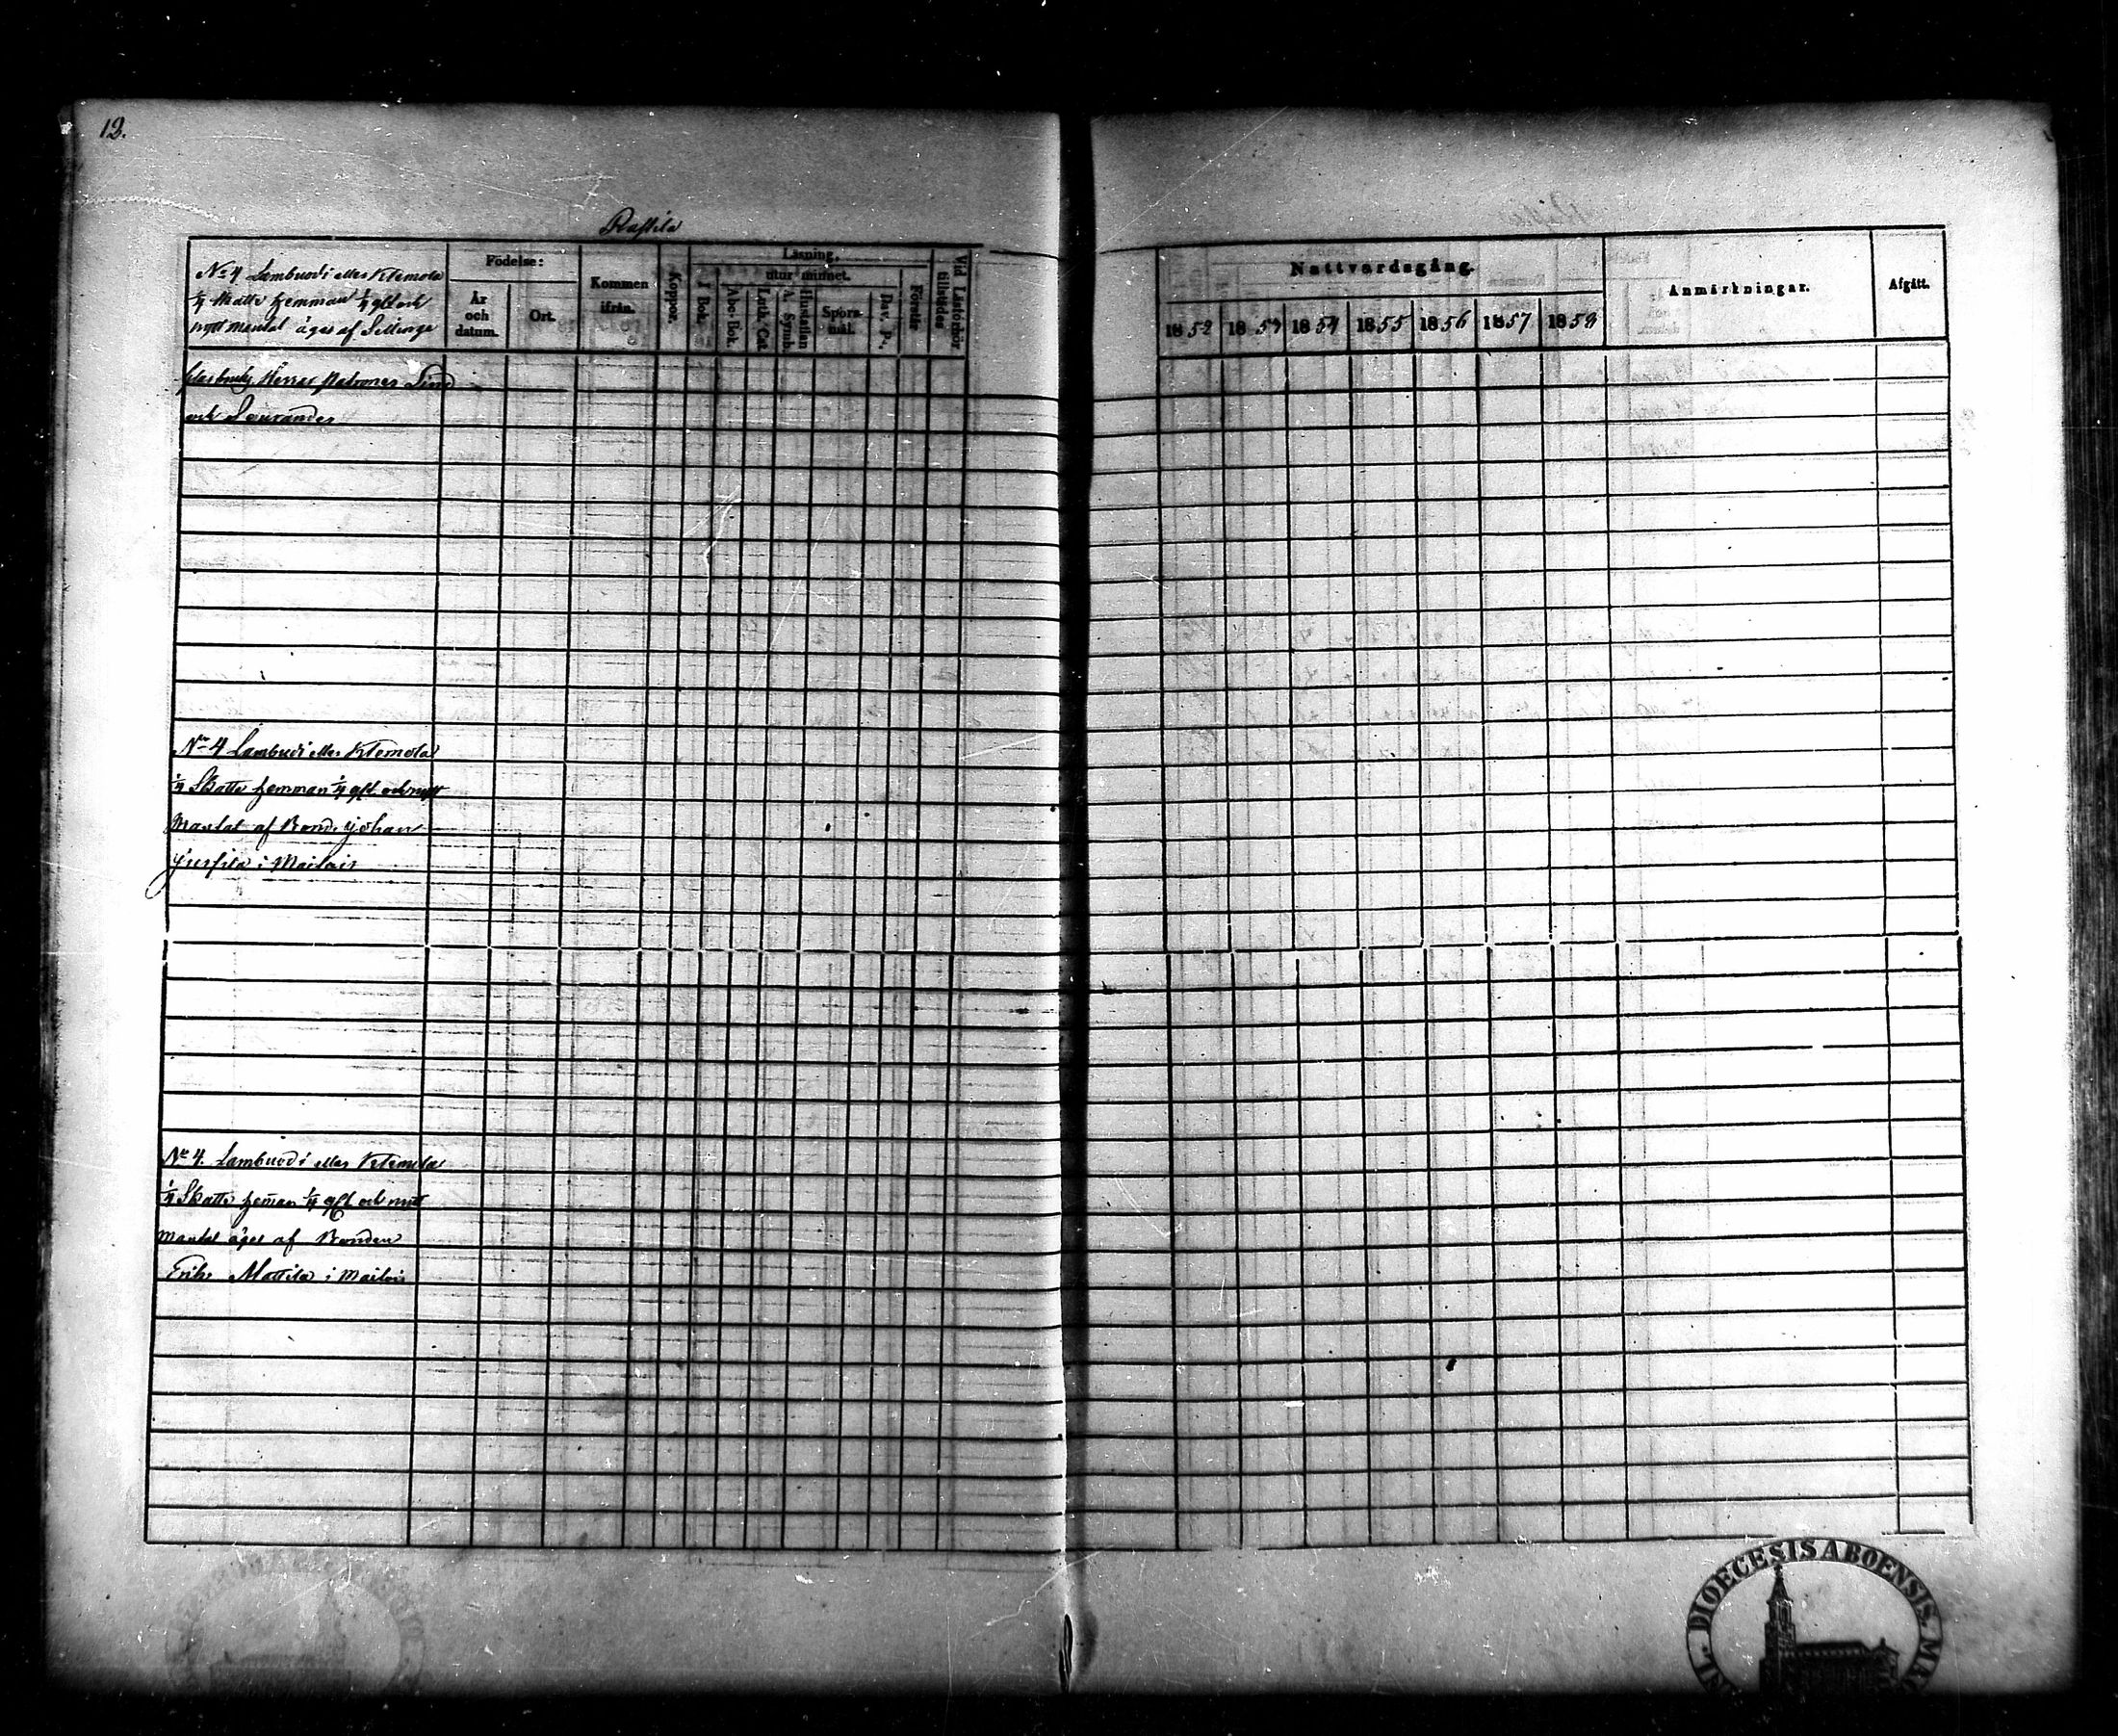 12.
Rastila
No 4 Lambuodi eller Klemola
1/4 Skatte hemman 1/4 gld och
nytt mantal äges af
Födelse:
År
och
datum.
Ort.
Kommen
ifrån.
Koppor.
Läsning,
utur minnet.
I Bok.
Abc-Bok.
Luth. Cat.
A. Symb.
Hustaflan
Spörs-
mål.
Dav. Ps.
Förstår
Vid Läsförhör
tillstädes
Glasbruks Herrar Patroner
och
No 4 Lambuodi eller Klemola
1/4 Skatte hemman 1/4 gld och nytt
Mantal af Bond. Johan
Jussila i Mailais
No 4. Lambuodi eller Klemola
1/4 Skatte heman 1/4 gld och nytt
mantal äges af Bonden
Erik Mattila i Mailais
Nattvardsgång.
1852 1853 1854 1855 1856 1857 1858
Anmärkningar.
Afgått.
DIOECESIS ABOENSIS.